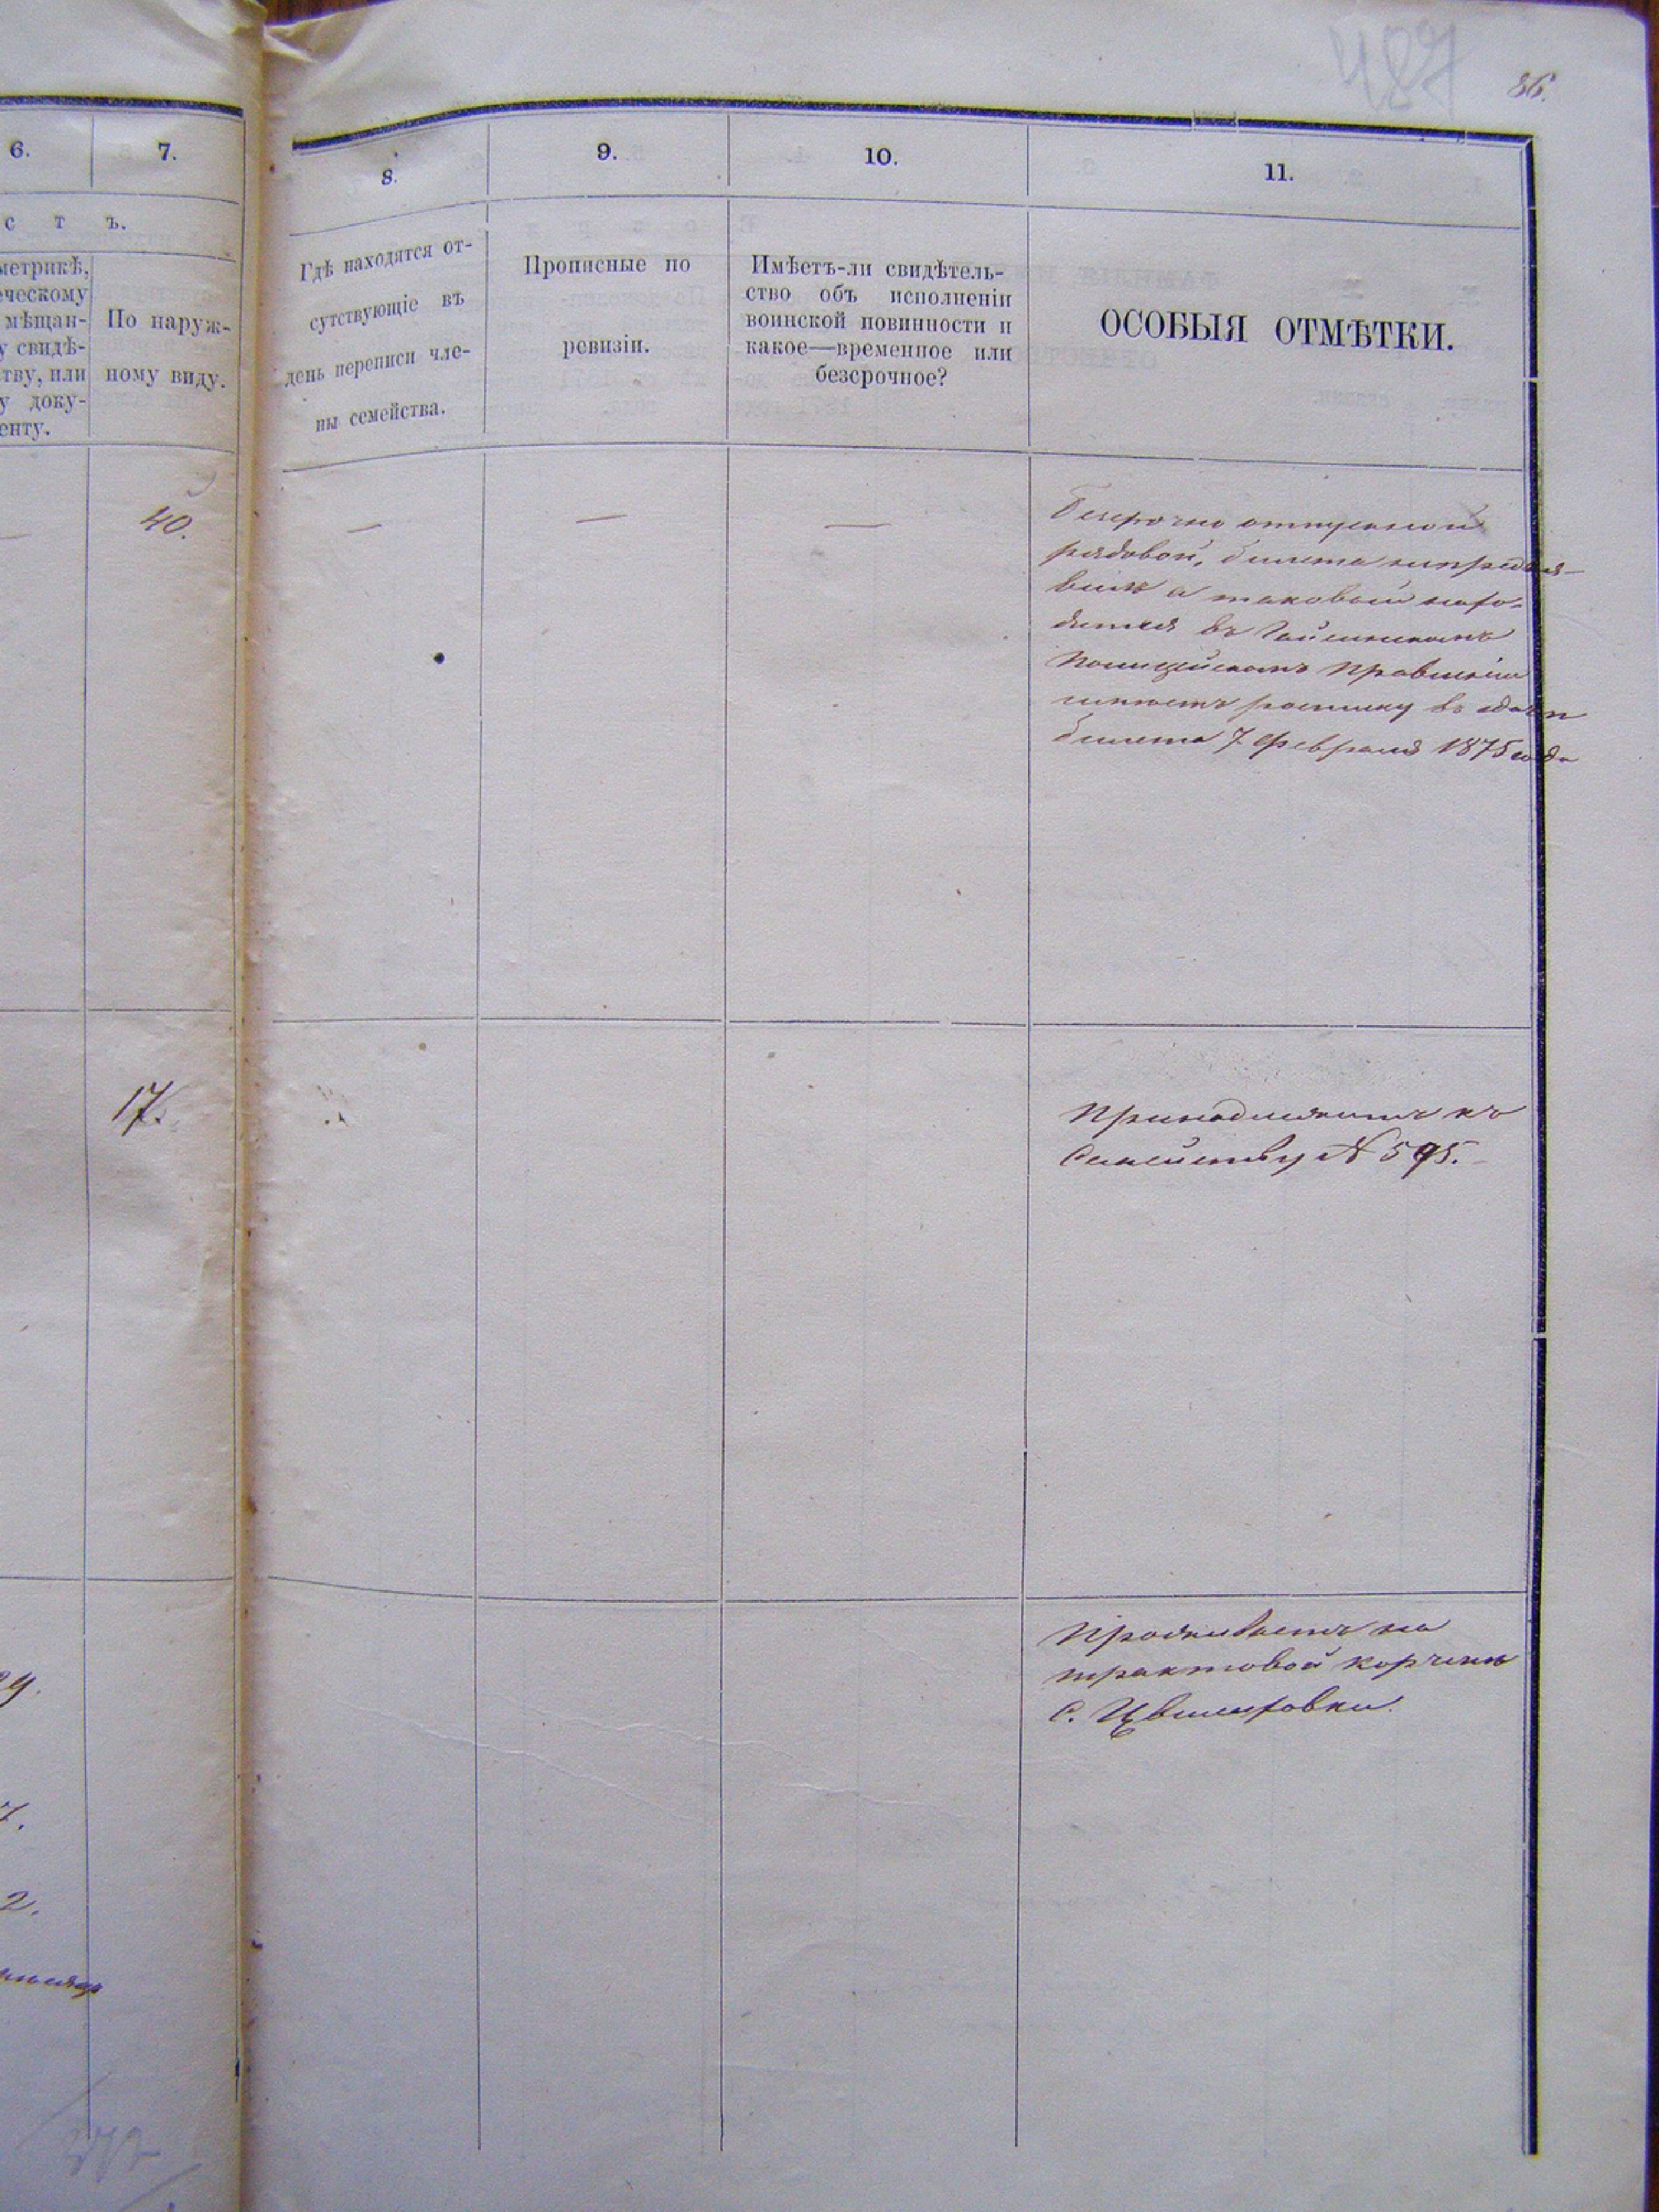 487
86.
6.
7.
8.
9.
10.
11.
с т ъ.
метрикѣ,
еческому
мѣщан-
у свидѣ-
тву, или
у доку-
енту.
По наруж-
ному виду.
Гдѣ находятся от-
сутствующіе въ
день переписи чле-
ны семейства.
Прописные по
ревизіи.
Имѣетъ-ли свидѣтель-
ство объ исполненіи
воинской повинности и
какое—временное или
безсрочное?
ОСОБЫЯ ОТМѢТКИ.
—
40.
—
—
—
Безсрочно отпускной
рядовой, билета непредъя-
вилъ а таковый нахо-
дится въ
Полицейскомъ Правленіи
имѣетъ росписку въ сдачѣ
билета 7 Февраля 1875 года
17.
Принадлежитъ къ
Семейству № 595.
Проживаетъ на
трактовой корчмѣ
С.
29.
7.
2.